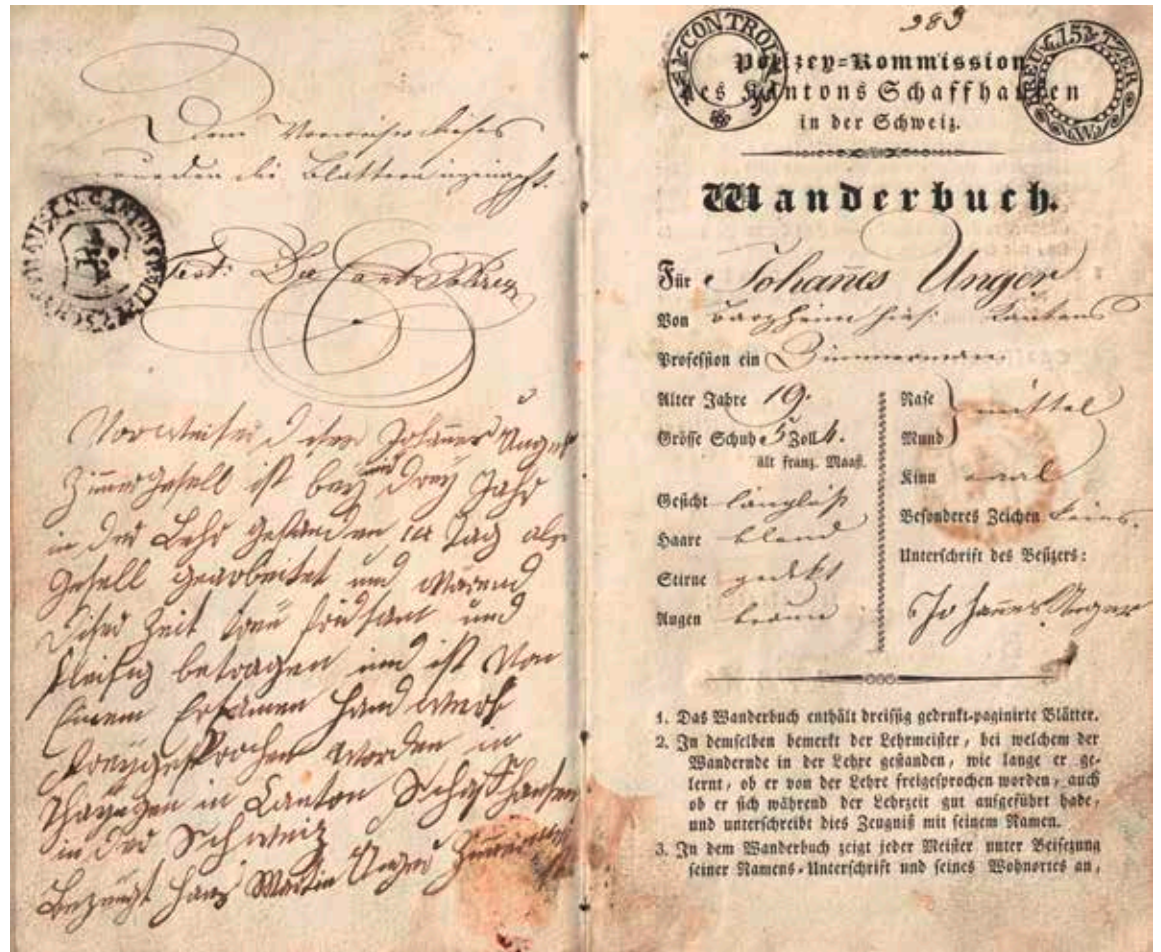 Dem Vorweiser dieses
wurden die Blattern eingeimpft.
Test: Die
Vorweiser diser Johannes Unger
Zimmergesell ist bey mir drey Jahr
in der Lehr gestanden 14 Tag als
Gesell gearbeitet und wärend
diser Zeit treu und
fleisig betragen und ist von
Einem Ersamen Handwerk
freygesprochen worden in
Thayngen in Canton Schaffhausen
in der Schweiz
Bezeugt Hans Martin Unger
283
CONTROL
KREUTZER 15
Polizey=Kommission
des Kantons Schaffhausen
in der Schweiz.
Wanderbuch.
Für Johanes Unger
Von Barzheim hies: Kantons
Profession ein Zimmermann
Alter Jahre 19.
Grösse Schuh 5 Zoll 4.
alt franz. Maaß.
Gesicht länglicht
Haare blond
Stirne gedekt
Augen braun
Nase } mittel
Mund
Kinn oval
Besonderes Zeichen keins.
Unterschrift des Besizers:
Johannes Unger
1. Das Wanderbuch enthält dreissig gedrukt-paginirte Blätter.
2. In demselben bemerkt der Lehrmeister, bei welchem der
Wandernde in der Lehre gestanden, wie lange er ge-
lernt, ob er von der Lehre freigesprochen worden, auch
ob er sich während der Lehrzeit gut aufgeführt habe,
und unterschreibt dies Zeugniß mit seinem Namen.
3. In dem Wanderbuch zeigt jeder Meister unter Beisezung
seiner Namens-Unterschrift und seines Wohnortes an,